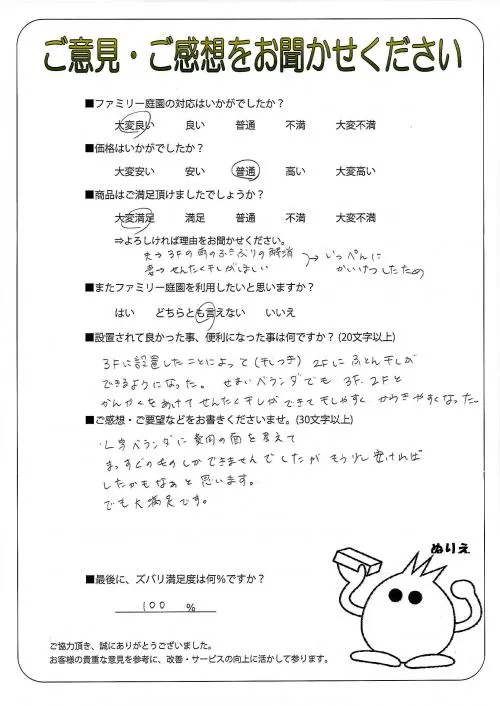 ご意見・ご感想をお聞かせください
■ファミリー庭園の対応はいかがでしたか？
大変良い　良い　普通　不満　大変不満
■価格はいかがでしたか？
大変安い　安い　普通　高い　大変高い
■商品はご満足頂けましたでしょうか？
大変満足　満足　普通　不満　大変不満
⇒よろしければ理由をお聞かせください。
夫→3Fの雨のふきぶりの解消
妻→せんたく干しがほしい
→いっぺんに
かいけつしたため
■またファミリー庭園を利用したいと思いますか？
はい　どちらとも言えない　いいえ
■設置されて良かった事、便利になった事は何ですか？(20文字以上)
3Fに設置したことによって(干しつき) 2Fにふとん干しが
できるようになった。 せまいベランダでも 3F.2Fと
かんかくをあけてせんたく干しができて干しやすく かわきやすくなった
■ご感想・ご要望などをお書きくださいませ。(30文字以上)
・L字ベランダに費用の面を考えて
まっすぐのものしかできませんでしたが もう少し安ければ
したかもなぁと思います。
でも大満足です。
ぬりえ
■最後に、ズバリ満足度は何％ですか？
100 %
ご協力頂き、誠にありがとうございました。
お客様の貴重な意見を参考に、改善・サービスの向上に活かして参ります。